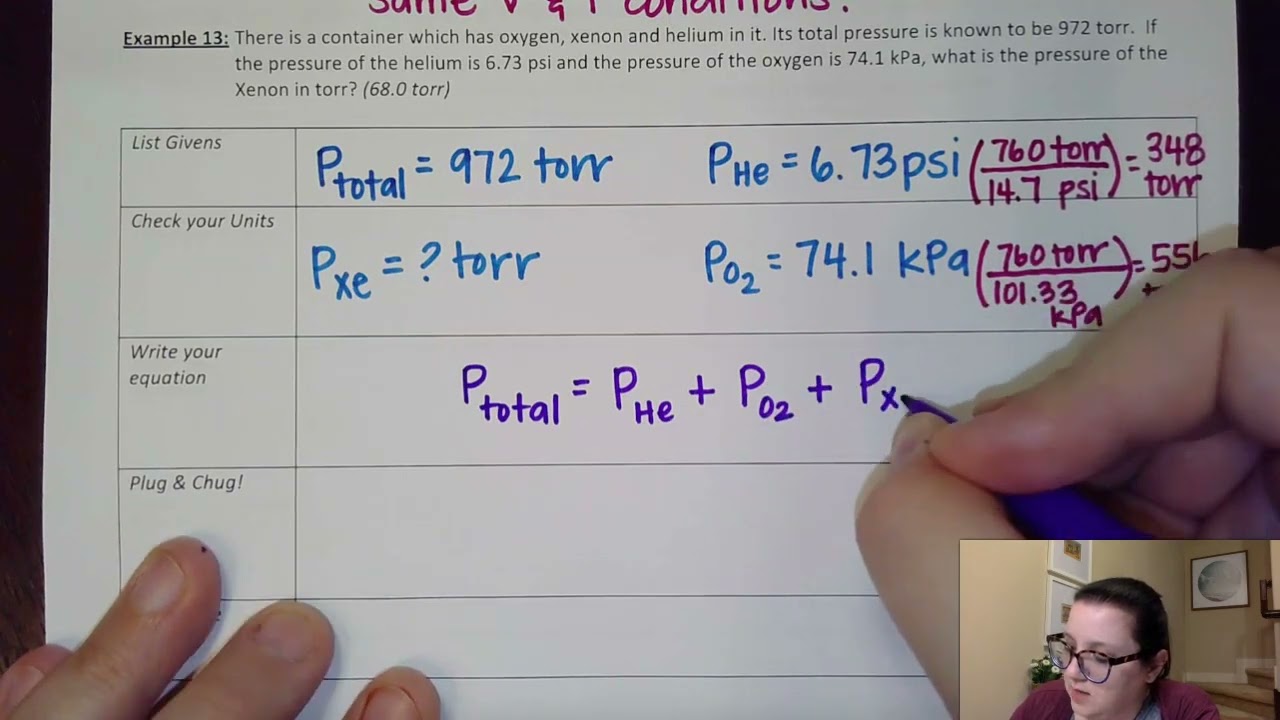 same V & T conditions!
Example 13: There is a container which has oxygen, xenon and helium in it. Its total pressure is known to be 972 torr. If
the pressure of the helium is 6.73 psi and the pressure of the oxygen is 74.1 kPa, what is the pressure of the
Xenon in torr? (68.0 torr)
List Givens
P total = 972 torr
P He = 6.73 psi (760 torr / 14.7 psi) = 348 torr
Check your Units
P xe = ? torr
P O2 = 74.1 kPa (760 torr / 101.33 kPa) =
Write your
equation
P total = P He + P O2 + P x
Plug & Chug!